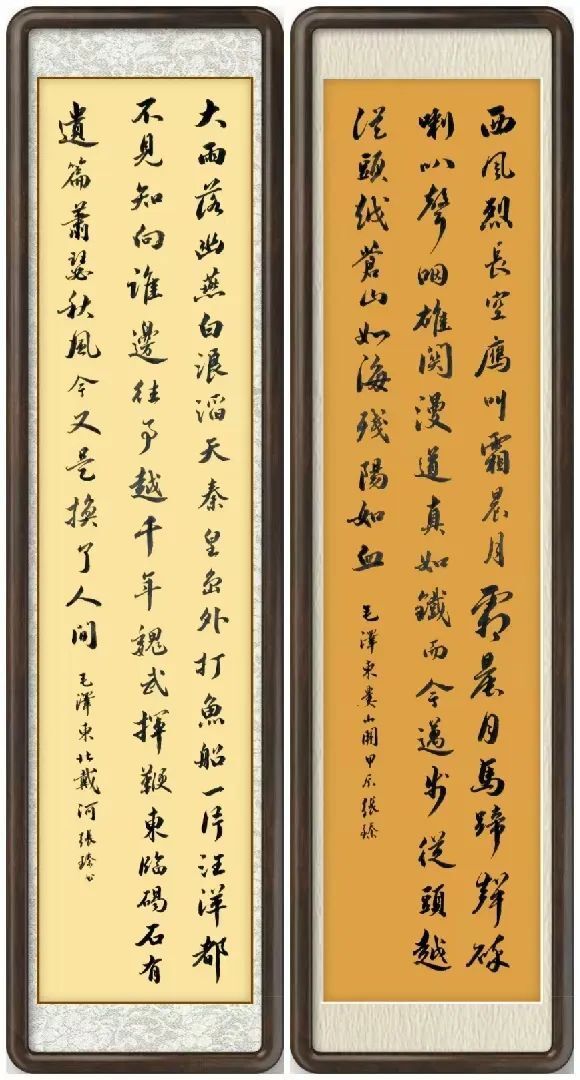 西風烈長空鷹叫霜晨月霜晨月馬蹄聲碎
喇叭聲咽雄関漫道真如鐵而今邁步從頭越
從頭越蒼山如海殘陽如血
毛澤東婁山関甲辰張臻
大雨落幽燕白浪滔天秦皇島外打魚船一片汪洋都
不見知向誰邊往事越千年魏武揮鞭東臨碣石有
遺篇蕭瑟秋風今又是換了人間
毛澤東北戴河張臻